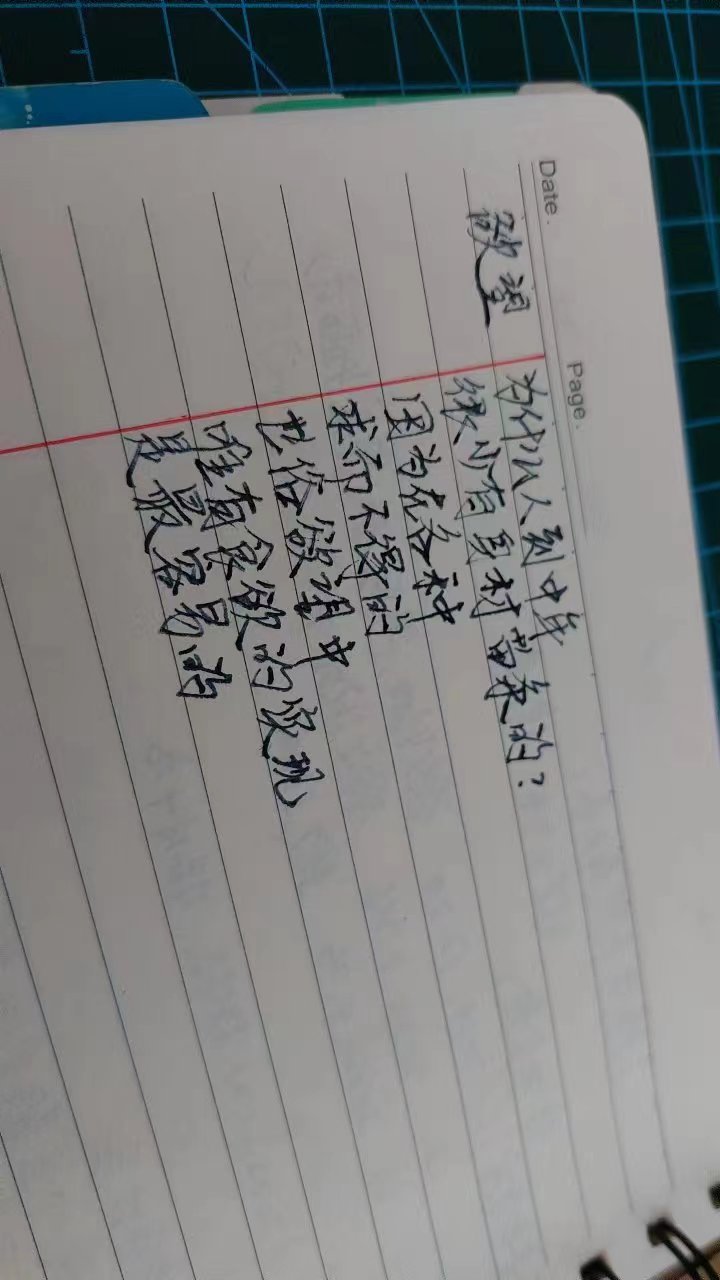 Date.
Page.
欲望
为什么人到中年
很少有身材苗条的？
因为在各种
求而不得的
世俗欲望中
唯有食欲的实现
是最容易的